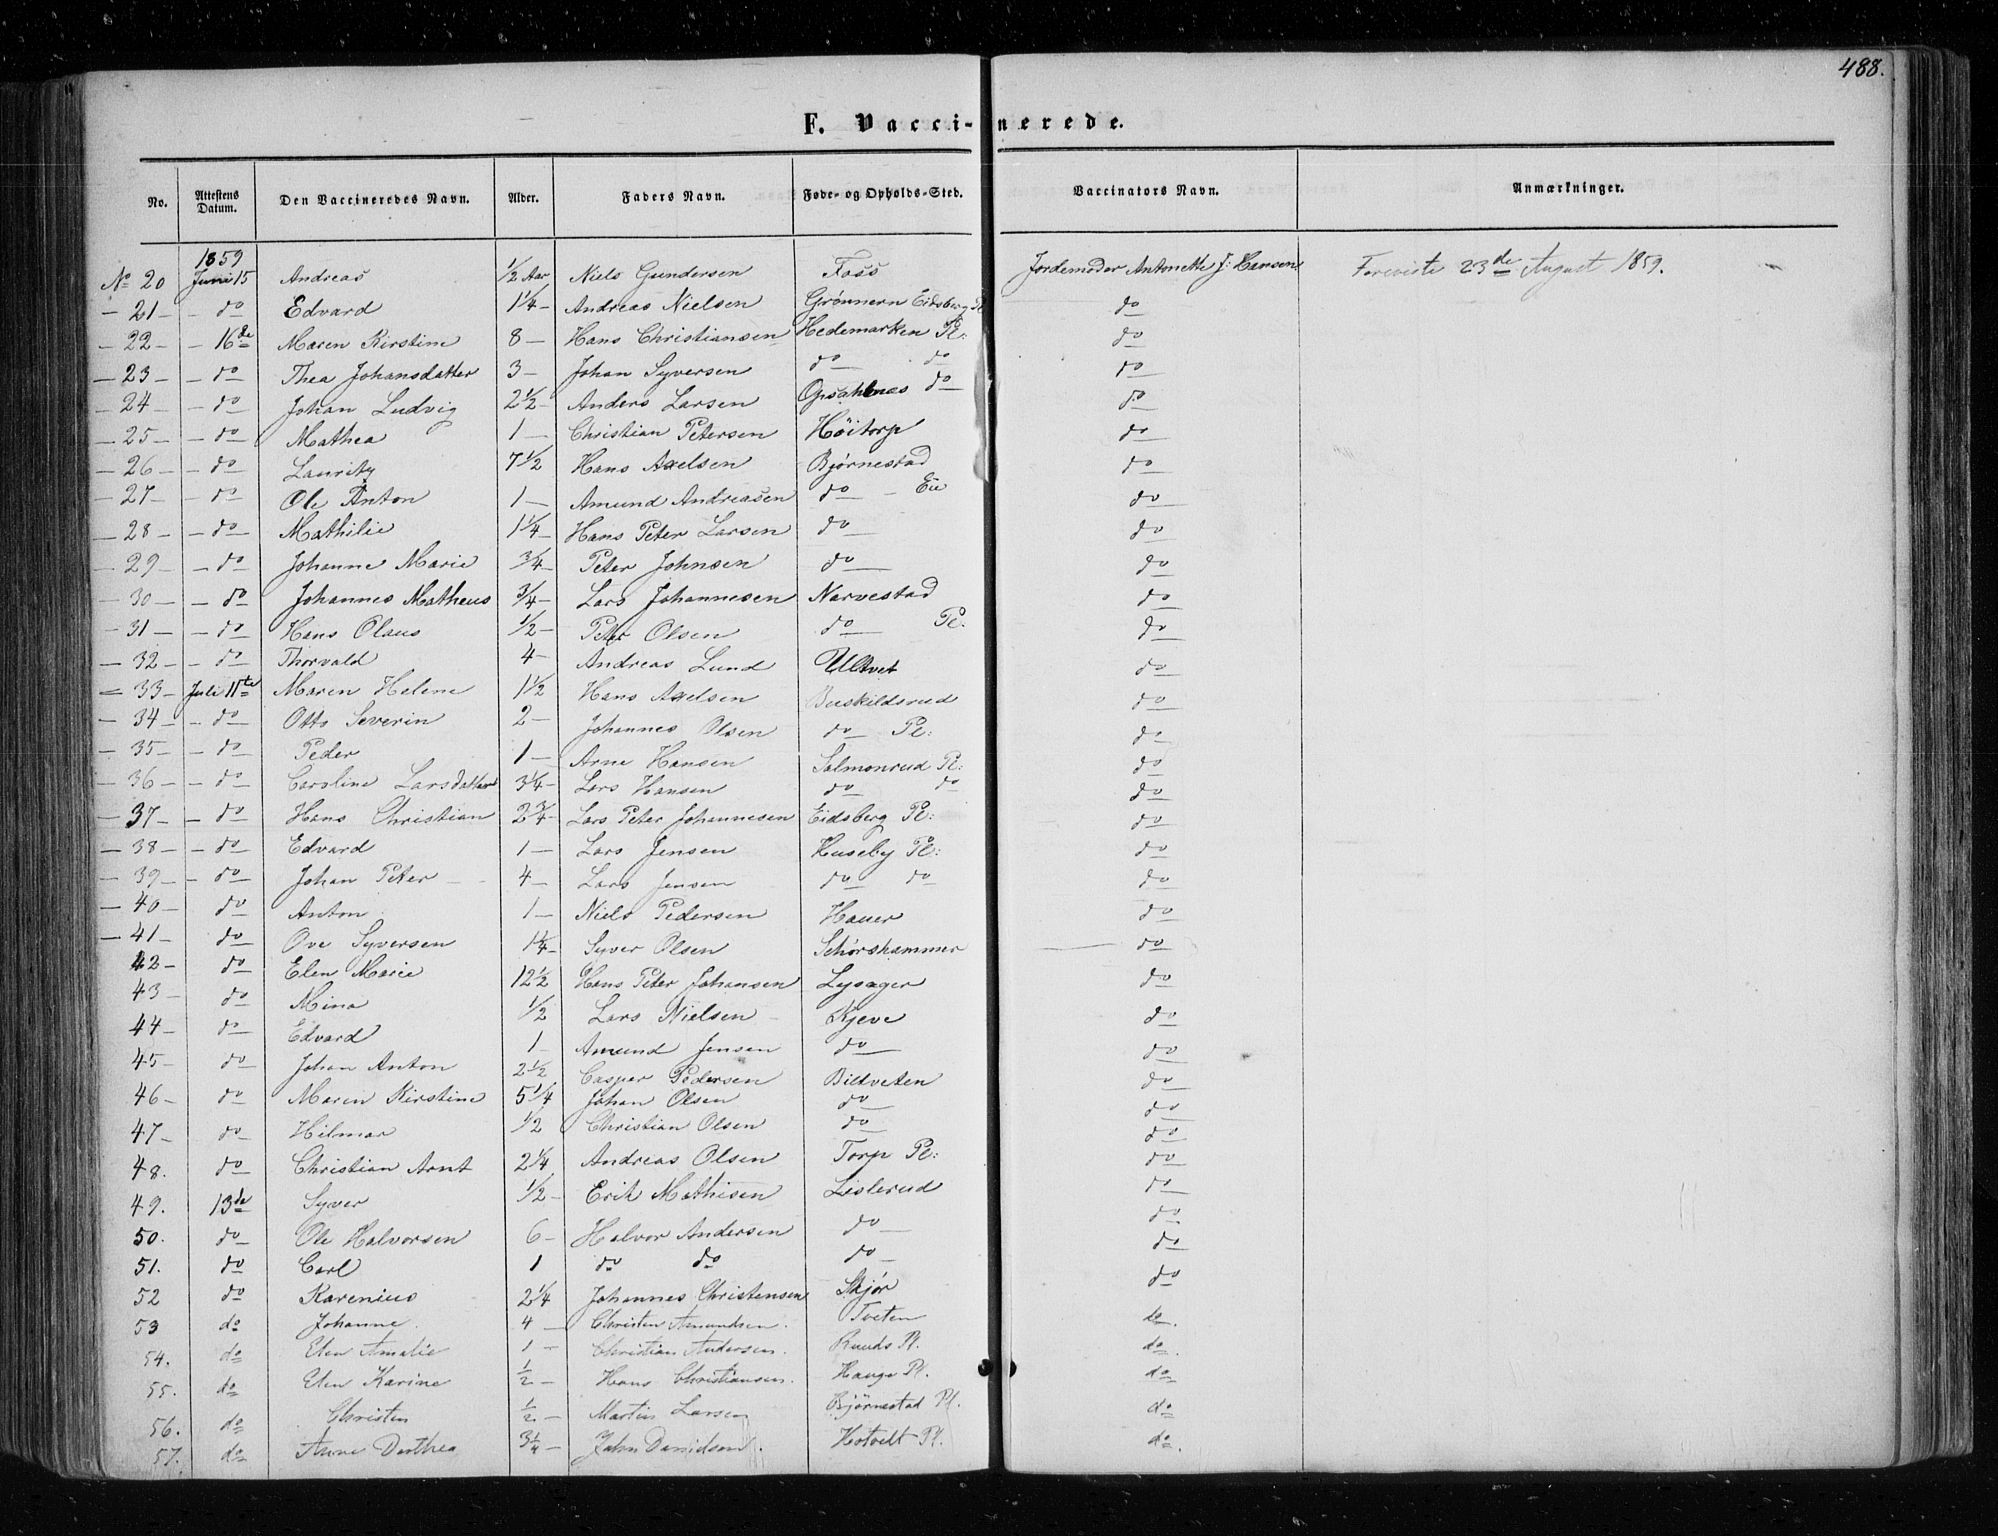 488.
F. Vaccinerede.
No. Attestens Datum. Den Vaccineredes Navn. Alder. Faders Navn. Føde- og Opholds-Sted. Vaccinators Navn. Anmærkninger.
1859
No 20 Juni 15 Andreas 1/2 Aar Niels Gundersen Foss Jordemoder Antonette J: Hansen Foreviste 23de August 1859.
- 21 - - do Edvard 1 1/4 - Andreas Nielsen Grønnern Eidsberg Pl do
- 22 - - 16de Maren Kirstine 8 - Hans Christiansen Hedemarken Pl: do
- 23 - - do Thea Johansdatter 3 - Johan Syversen do do do
- 24 - - do Johan Ludvig 2 1/2 - Anders Larsen Opsahlnes do do
- 25 - - do Mathea 1 - Christian Petersen Høitorp do
- 26 - - do Lauritz 7 1/2 Hans Axelsen Bjørnestad do
- 27 - - do Ole Anton 1 - Amund Andreasen do - Eie do
- 28 - - do Mathilie 1 1/4 - Hans Peter Larsen do do
- 29 - - do Johanne Marie 3/4 - Peter Johnsen do do
- 30 - - do Johannes Matheus 3/4 - Lars Johannesen Narvestad do
- 31 - - do Hans Olaus 1/2 - Peter Olsen do Pl. do
- 32 - - do Thorvald 4 - Andreas Lund Ultvet do
- 33 - Juli 11te Maren Helene 1 1/2 Hans Axelsen Buskildsrud do
- 34 - - do Otto Severin 2 - Johannes Olsen do Pl: do
- 35 - - do Peder 1 - Arne Hansen Salmonrud Pl: do
- 36 - - do Caroline Larsdatter 3 1/4 - Lars Hansen do do do
- 37 - - do Hans Christian 2 3/4 - Lars Peter Johannesen Eidsberg Pl: do
- 38 - - do Edvard 1 - Lars Jensen Huseby Pl: do
- 39 - - do Johan Peter 4 - Lars Jensen do do do
- 40 - do Anton 1 - Niels Pedersen Hauer do
- 41 - do Ove Syversen 1 1/4 - Syver Olsen Schørshammer do
42 - do Elen Marie 12 1/2 Hans Peter Johansen Lysager do
43 - do Mina 1/2 Lars Nielsen Kjeve do
44 - do Edvard 1 - Amund Jensen do do
45 - do Johan Anton 2 1/2 Casper Pedersen Biltveten do
46 - do Maren Kirstine 5 1/4 Johan Olsen do do
47 - do Hilmar 1/2 Christian Olsen do do
48. do Christian Arnt 2 1/4 Andreas Olsen Torp Pl: do
49. 13de Syver 1/2 - Erik Mathisen Lislerud do
50. do Ole Halvorsen 6 - Halvor Andersen do do
51. do Carl 1 do do do do
52 do Karenius 2 1/4 Johannes Christensen Skjør do
53 do Johanne. 4 - Christen Amundsen. Tveten do.
54. do Elen Amalie 1 - Christian Andersen. Ruuds Pl. do.
55. do Elen Karine 1/2 - Hans Christiansen. Hauge Pl. do
56. do Christen 1/2 - Martin Larsen Bjørnestad Pl. do
57. do Anne Dorthea 3 1/4 - John Davidsen. Hotvelt Pl. do.